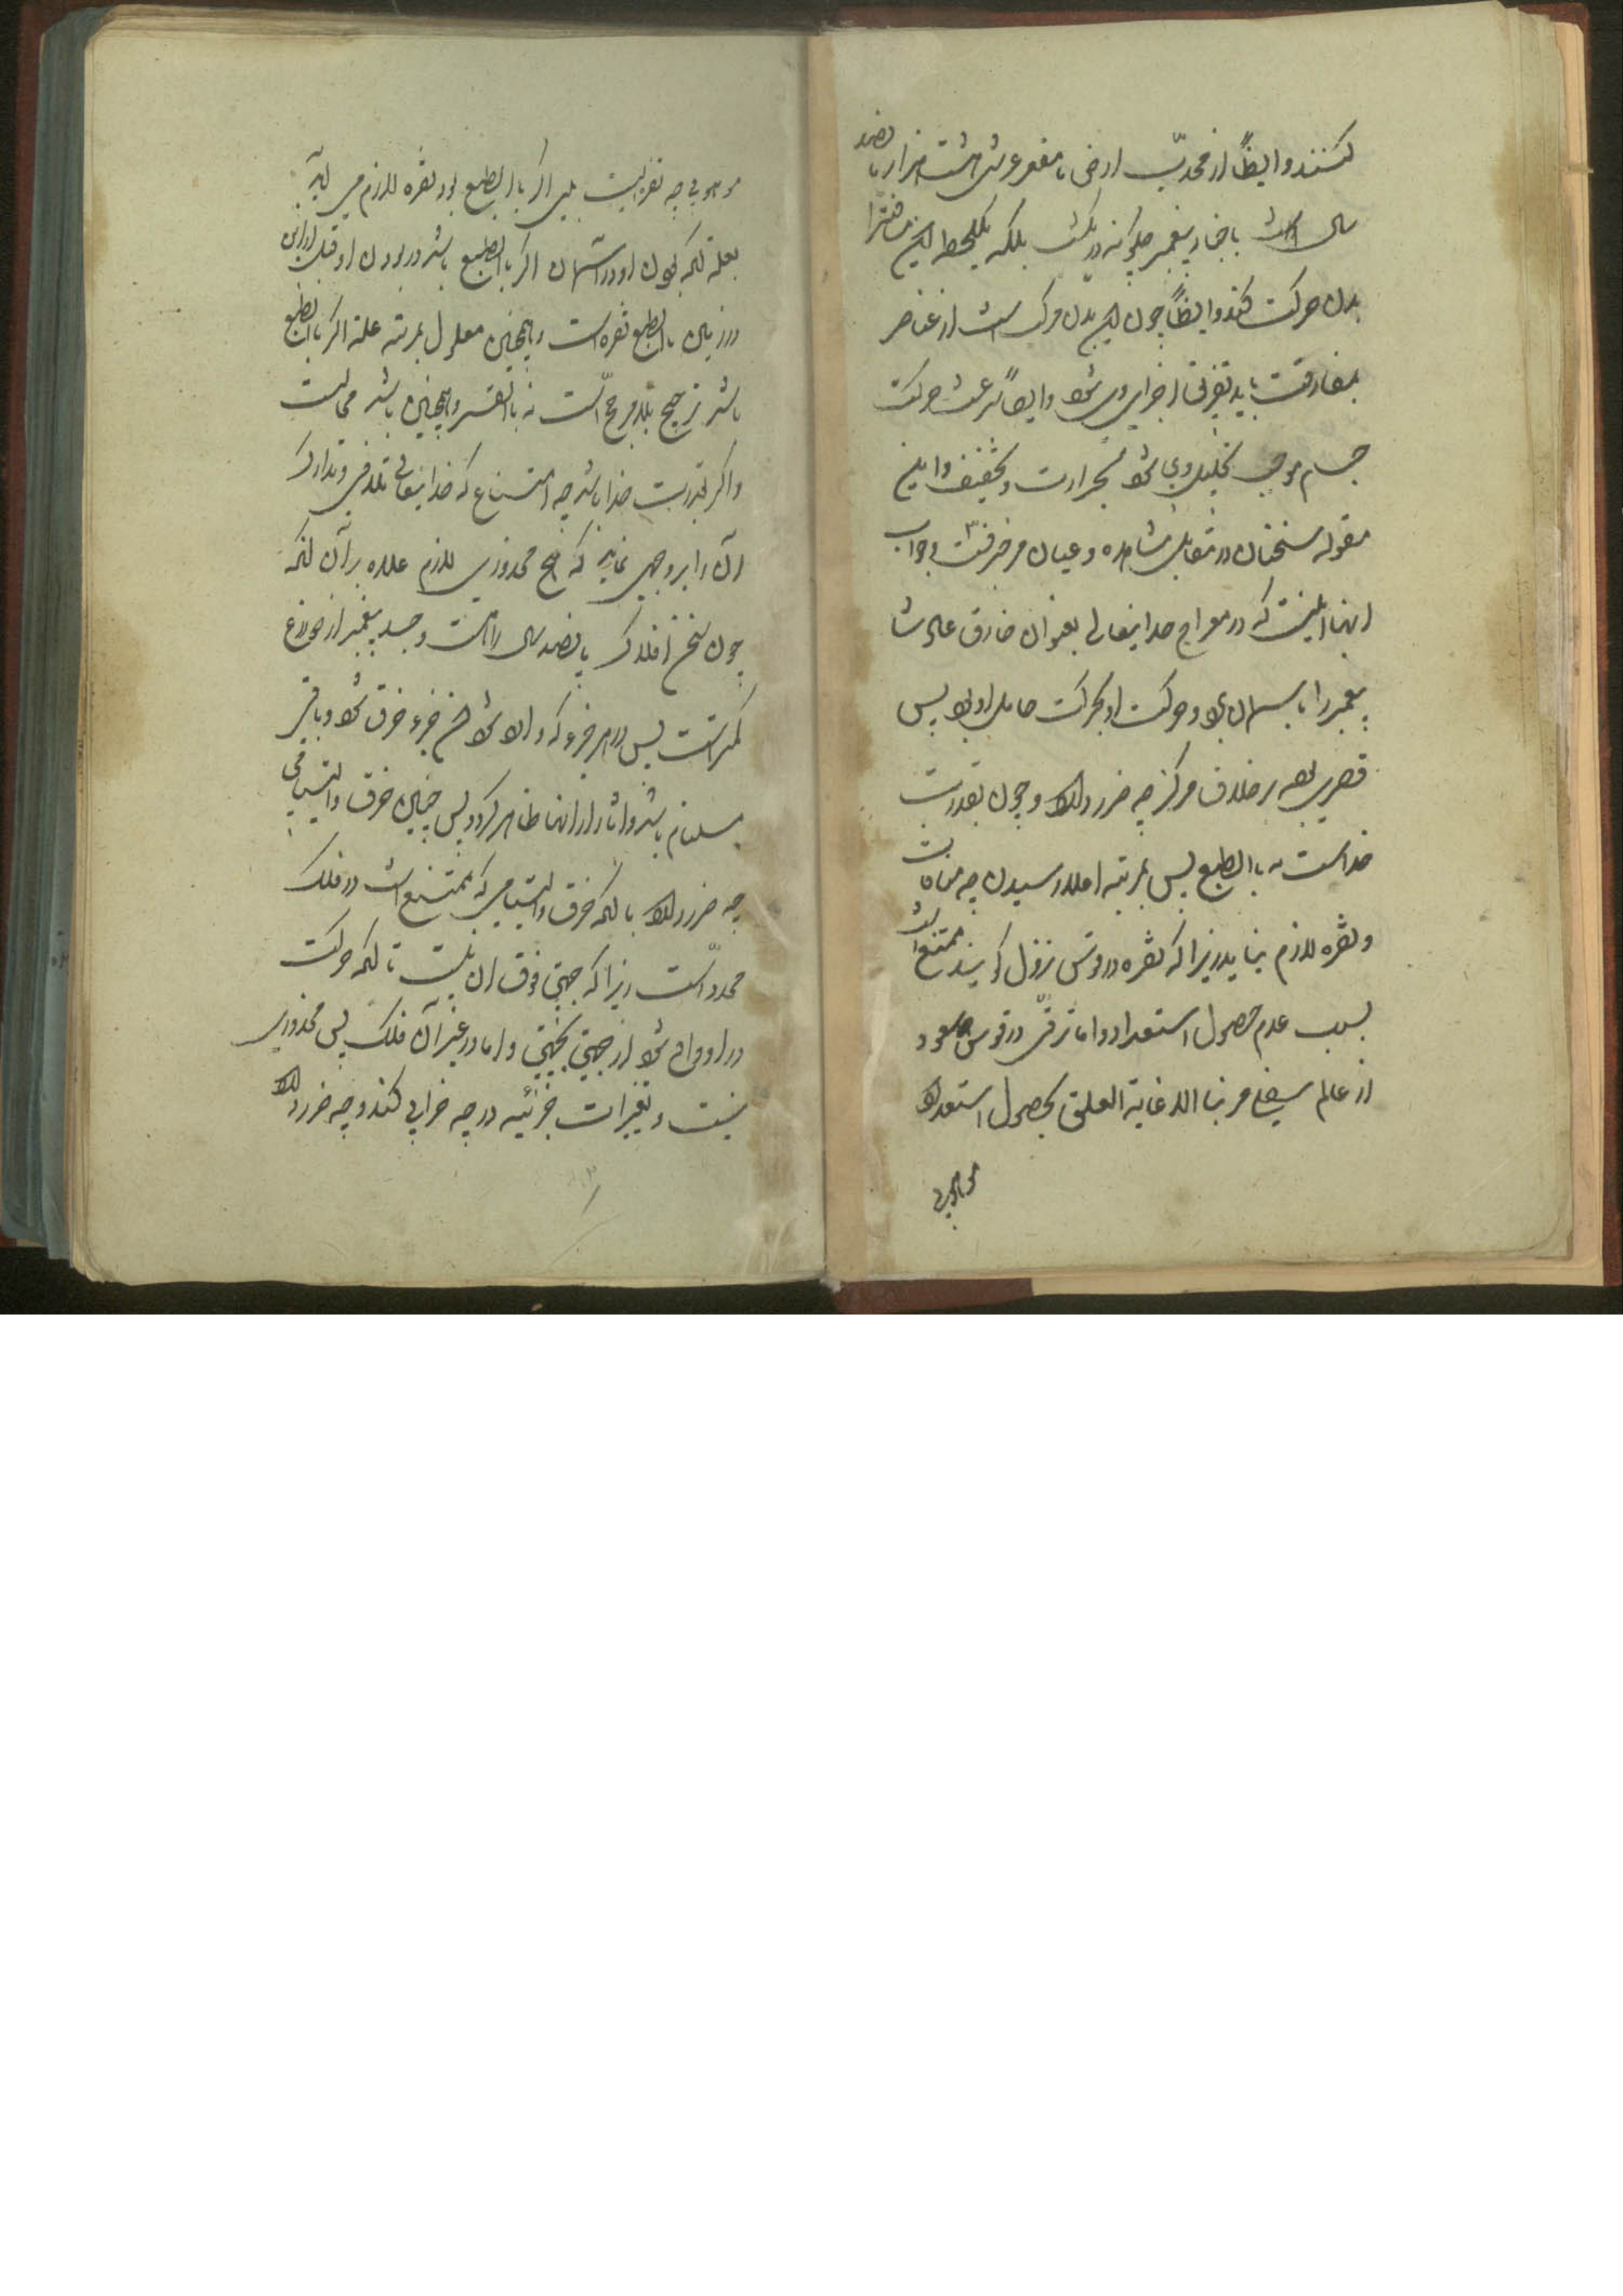 کنند و ایضاً از محدّب ارض تا مقعر عرش هشت هزار پانصد
سال است باخبار پیغمبر چگونه در یکشب بلکه بیکلحظه این مسافترا
بدن حرکت کند و ایضاً چون این بدن مرکب است از عناصر
بمفارقت باید تفرق اجزای وی شود و ایضاً سرعت حرکت
جسم موجب تحلیل وی شود بحرارت و تخفیف و این
مقوله سخنان در مقابل مشاهده و عیان مزخرفست و جواب
اینها اینست که در معراج خدایتعالی بعنوان خارق عادت
پیغمبر را بآسمان برد و حرکت او بحرکت حامل او بود پس
قصری بود بر خلاف مرکز چه ضرر دارد و چون بقدرت
خداست نه بالطبع پس بمرتبه اعلا رسیدن چه منافات
و ثفره لازم نیاید زیرا که ثفره در قوس نزول گویند ممتنع است
بسبب عدم حصول استعداد و اما ترقّی در قوس صعود
از عالم سفلی مر بنا الد غایة العلی بحصول استعداد
موهوبی
موهوبی چه ثفره ایست بلی اگر بالطبع بود ثفره لازم می آید
بعلة آنکه بودن او در آسمان اگر بالطبع باشد در بودن او قبل از این
در زمین بالطبع ثفره است و همچنین معلول بمرتبه علة اگر بالطبع
باشد ترجیح بلا مرجح است نه بالقسر و همچنین باشد محالست
و اگر بقدرت خدا باشد چه امتناع که خدایتعالی تلافی و تدارک
آن را بر وجهی نماید که هیچ محذوری لازم علاوه بر آن آنکه
چون سخن افلاک پانصد سال راهست و جسد پیغمبر از دو زرع
کمتر است پس در هر جزء که داخل شود هم جزء خرق شود و باقی
ملتئام باشد و آثار از آنها ظاهر گردد پس چنین خرق و التیامی
چه ضرر دارد با آنکه خرق و التیامی که ممتنع است در فلک
محدد است زیرا که جهتی فوق آن نیست تا آنکه حرکت
در او واقع شود از جهتی بجهتی و اما در غیر آن فلک پس محذوری
نیست و تغییرات جزئیه در چه خرابی کند و چه ضرر دارد